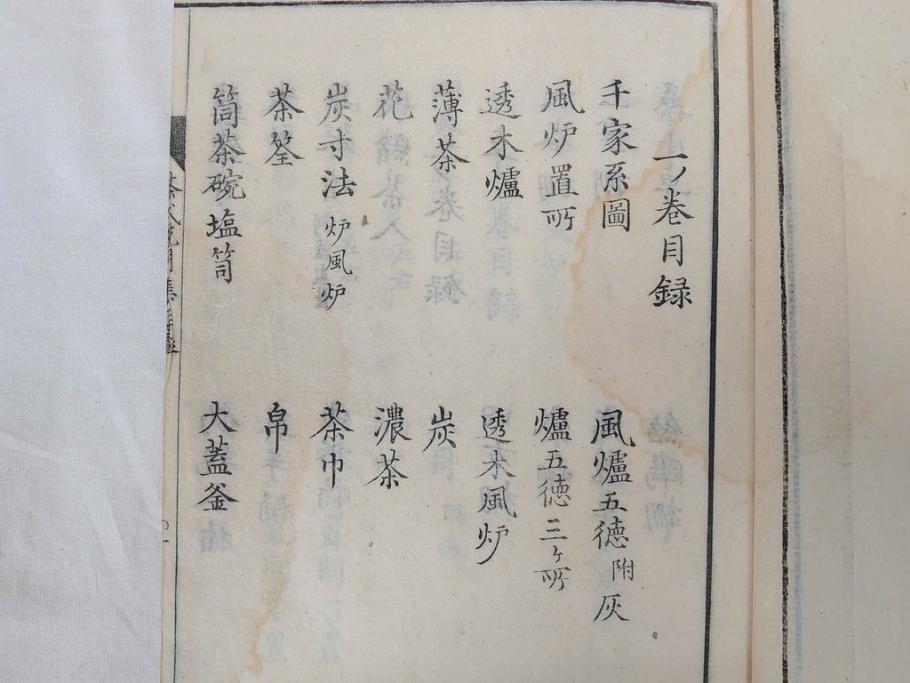 一ノ巻目録
千家系圖
風爐五徳 附灰
風炉置所
爐五徳三ヶ所
透木爐
透木風炉
薄茶
炭
花
濃茶
炭寸法 炉風炉
茶巾
茶筌
帛
筒茶碗塩笥
大蓋釜